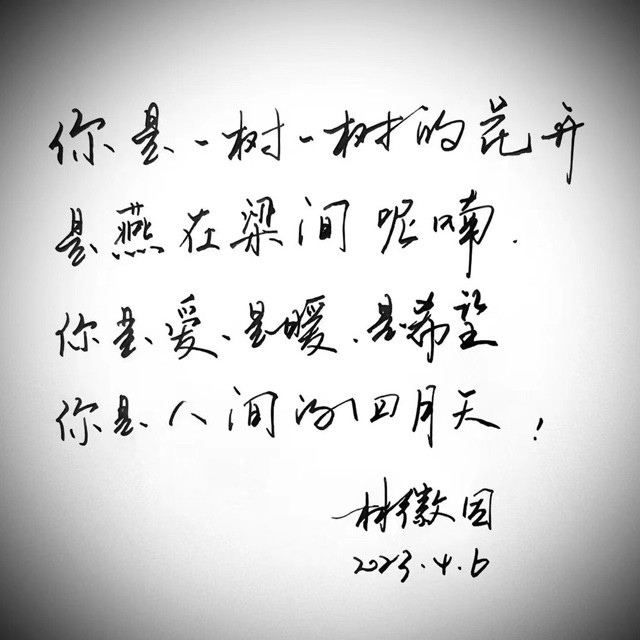 你是一树一树的花开
是燕在梁间呢喃.
你是爱、是暖、是希望
你是人间的四月天！
林徽因
2023.4.6